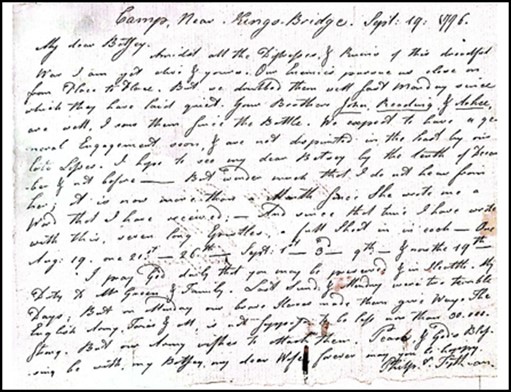 Camp, Near Kings-Bridge. Sept: 19: 1776.
My dear Betsey.
Amidst all the Distresses, & Ruins of this dreadful
War I am yet alive & yours. Our Enemies pursue us close on
from Place to Place. But we drubbed them well last Monday since
which they have laid quiet. Your Brothers John, Reading &
are well, I saw them since the Battle. We expect to have a ge-
neral Engagement soon, & are not dispirited in the least by our
late Losses. I hope to see my dear Betsey by the tenth of Decem
ber & not before — But wonder much that I do not hear from
her; it is now more than a Month since She wrote me a
Word that I have received; — And since that time I have wrote
with this, seven long Epistles, a full Sheet in each — One
Aug: 19. one 21st — 26th — Sept: 1st — 3d — 9th — & now the 19th —
I pray God daily that you may be preserved & in Health. My
Duty to Mr Green & Family. Last Sund. & Monday were two terrible
Days; But on Monday our brave Heroes made them give Way. The
English Army, Tories & all, is not supposed to be less than 30.000.
Strong. But our Army wishes to attack them. Peace & God's Bles-
sing be with, my Betsey, my dear Wife, forever may you be happy.
Philip V. Fithian.